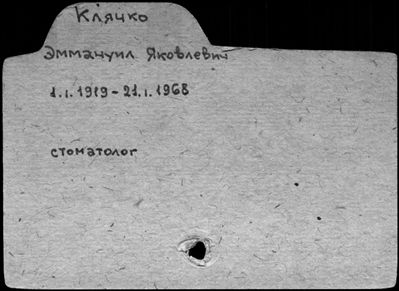 Клячко
Эммануил Яковлевич
1.I.1919-21.I.1968
стоматолог